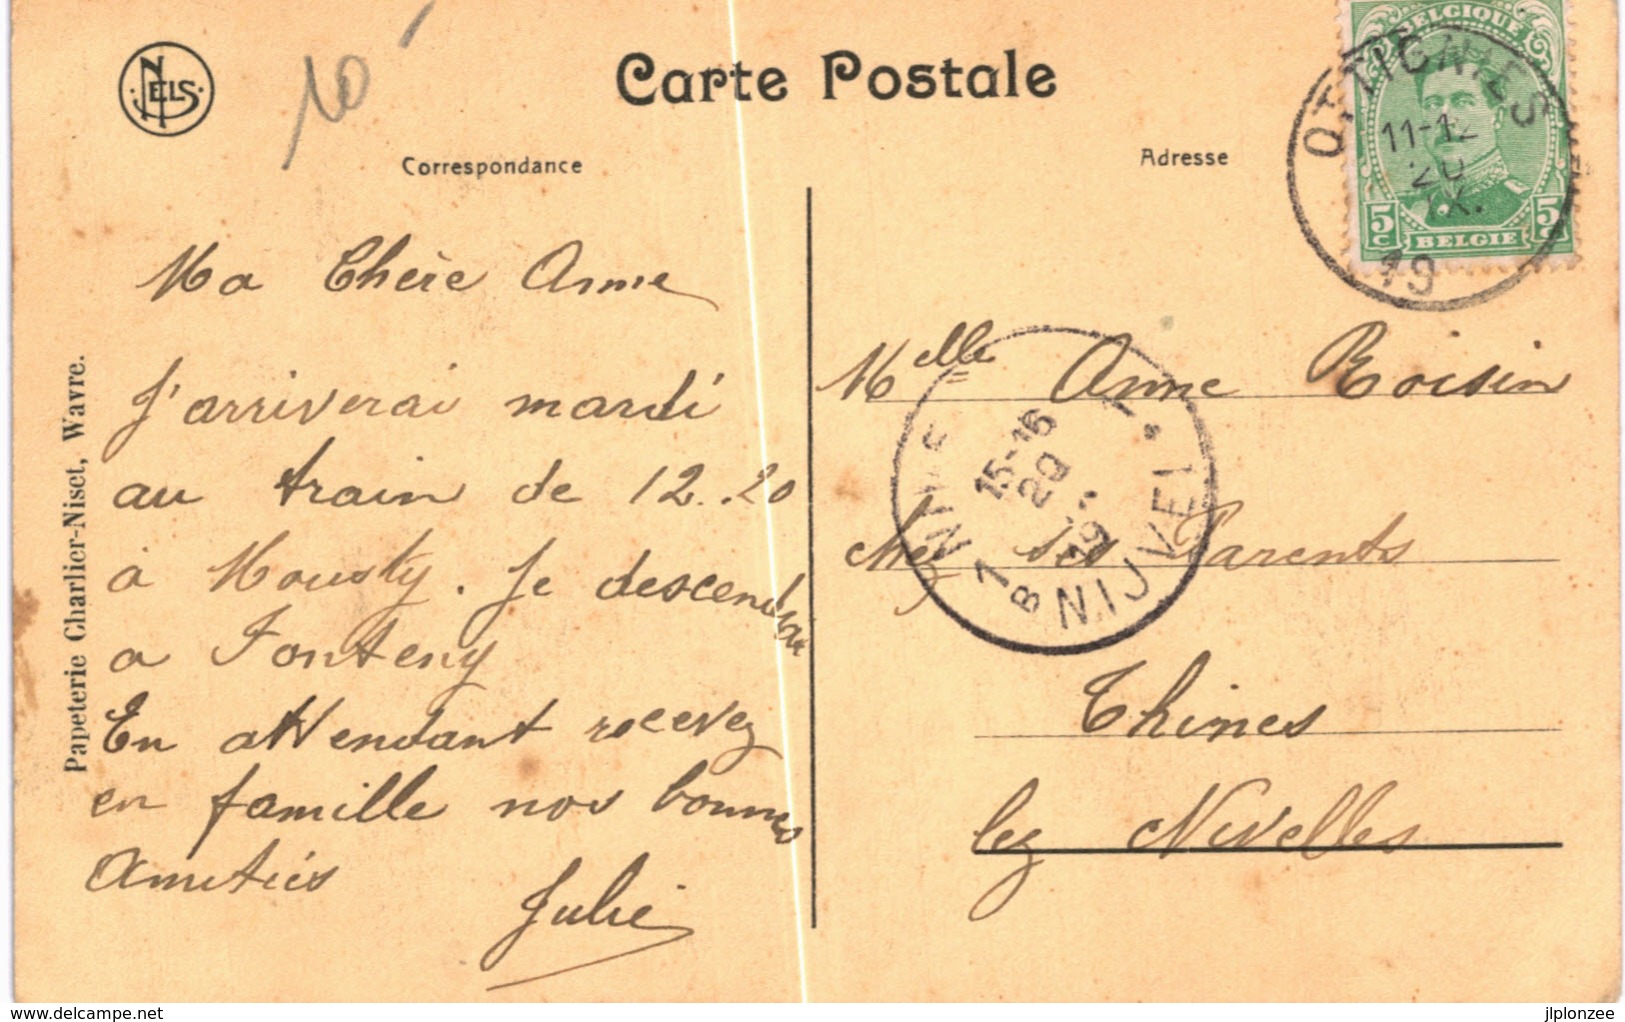 NELS
10
Carte Postale
Correspondance
Adresse
BELGIQUE
5c BELGIE 5c
OTTIGNIES
11-12
20
IX.
19
Papeterie Charlier-Niset, Wavre.
Ma Chère Anne
J'arriverai mardi
au train de 12.20
à Mousty. Je descendrai
a Fonteny
En attendant recevez
en famille nos bonnes
Amitiés
Julie
Melle Anne Roisin
chez ses Parents
Thines
lez Nivelles
1 NIVE
15-16
20
19
1 B NIJVEL 1
delcampe.net
jlplonzee